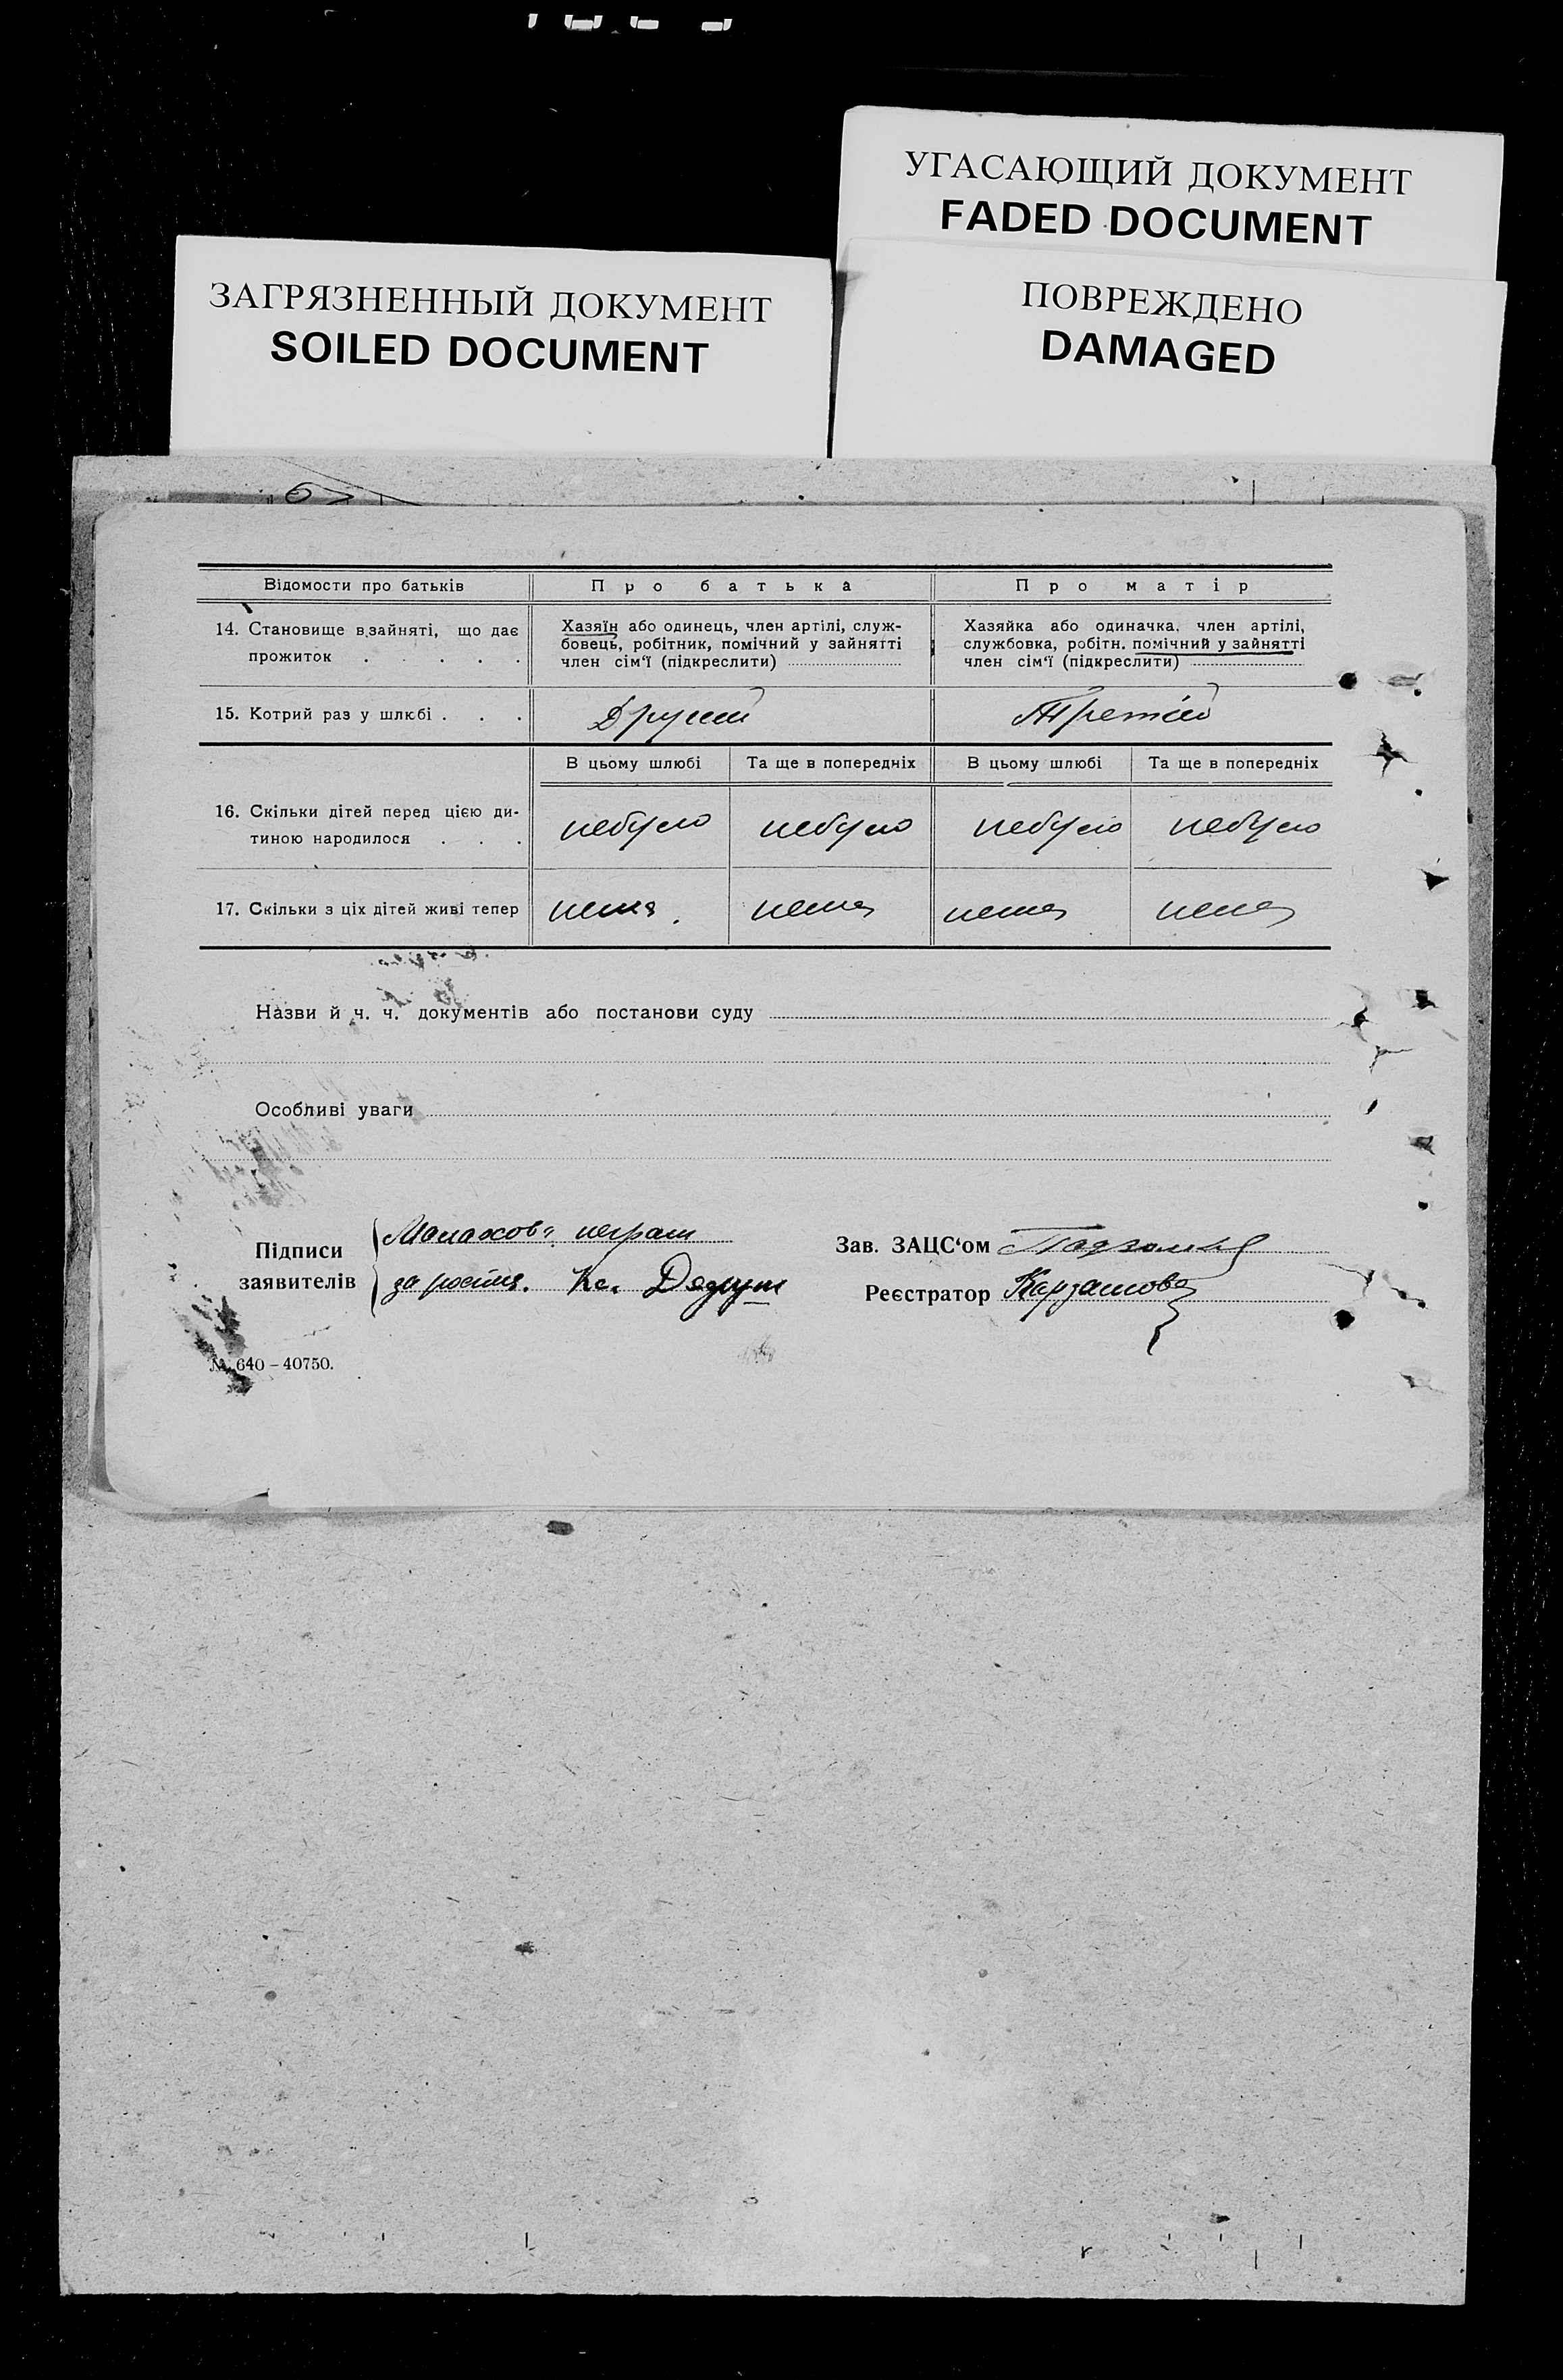 УГАСАЮЩИЙ ДОКУМЕНТ
FADED DOCUMENT
ЗАГРЯЗНЕННЫЙ ДОКУМЕНТ
SOILED DOCUMENT
ПОВРЕЖДЕНО
DAMAGED
Відомости про батьків
Про батька
Про матір
14. Становище в зайняті, що дає
прожиток . . . . .
Хазяїн або одинець, член артілі, служ-
бовець, робітник, помічний у зайнятті
член сім'ї (підкреслити)
Хазяйка або одиначка, член артілі,
службовка, робітн. помічний у зайнятті
член сім'ї (підкреслити)
15. Котрий раз у шлюбі . . .
Другий
Третій
В цьому шлюбі
Та ще в попередніх
В цьому шлюбі
Та ще в попередніх
16. Скільки дітей перед цією ди-
тиною народилося . . .
небуло
небуло
небуло
небуло
17. Скільки з ціх дітей живі тепер
нема.
нема
нема
нема
Назви й ч. ч. документів або постанови суду
Особливі уваги
Підписи
заявителів
Малахова неграм
Зав. ЗАЦС'ом
Реєстратор
№ 640 – 40750.